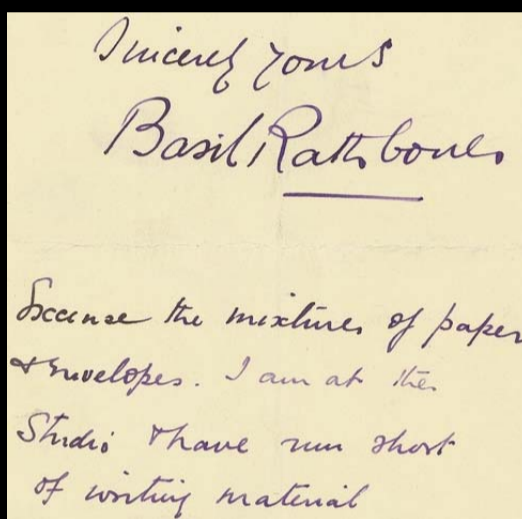 Sincerely yours
Basil Rathbone
Excuse the mixtures of paper
& envelopes. I am at the
Studio & have run short
of writing material